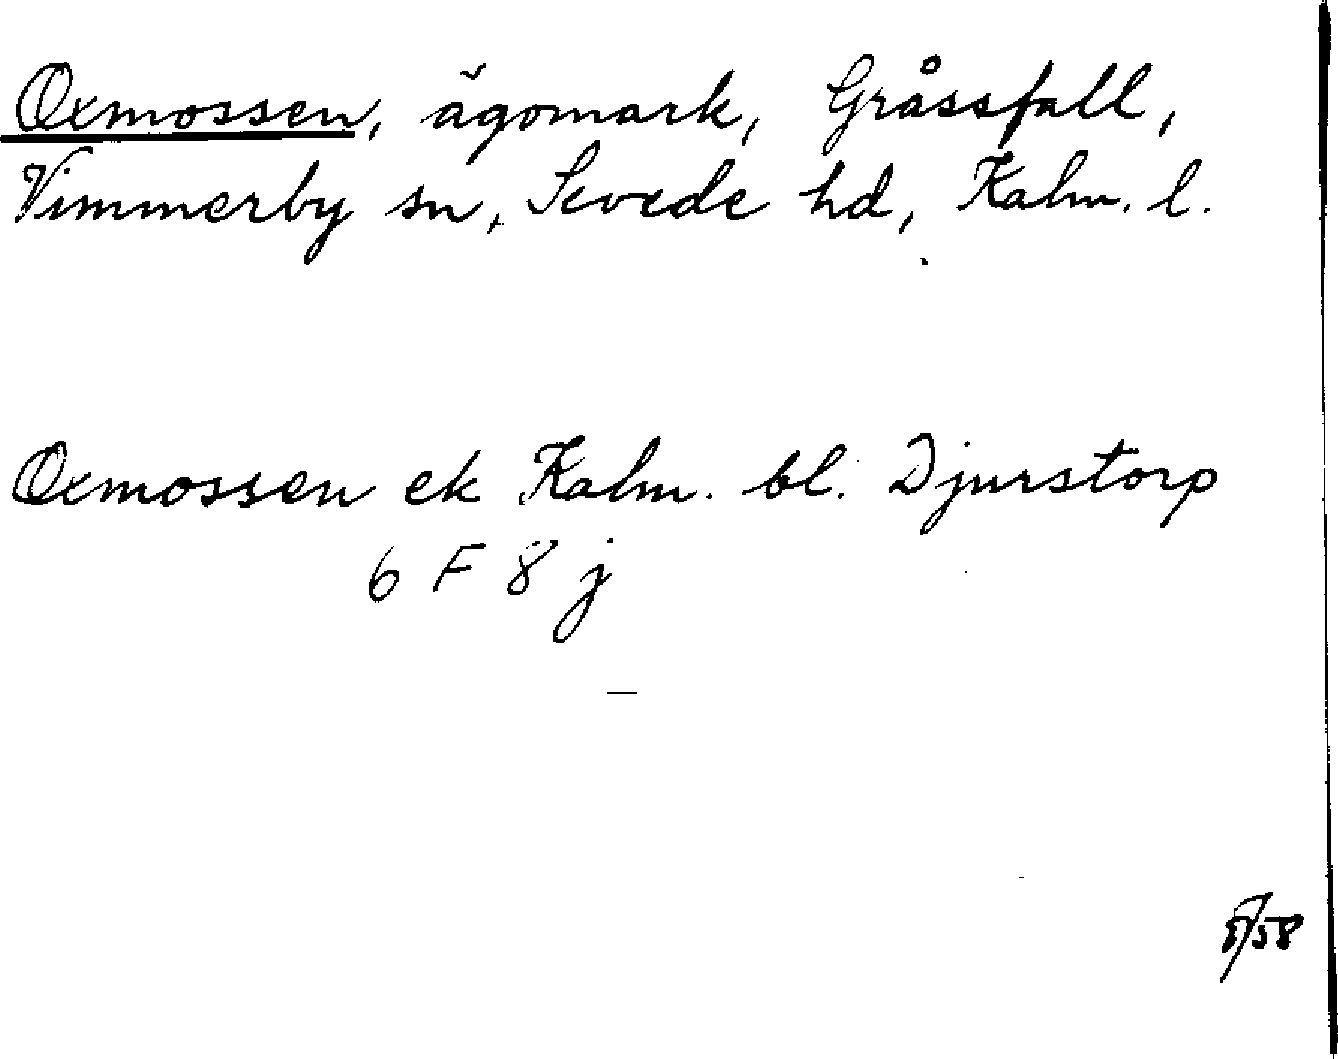 Oxmossen, ägomark, Gråssfall,
Vimmerby sn, Sevede hd, Kalm. l.
Oxmossen ek Kalm. bl. Djurstorp
6 F 8 j
—